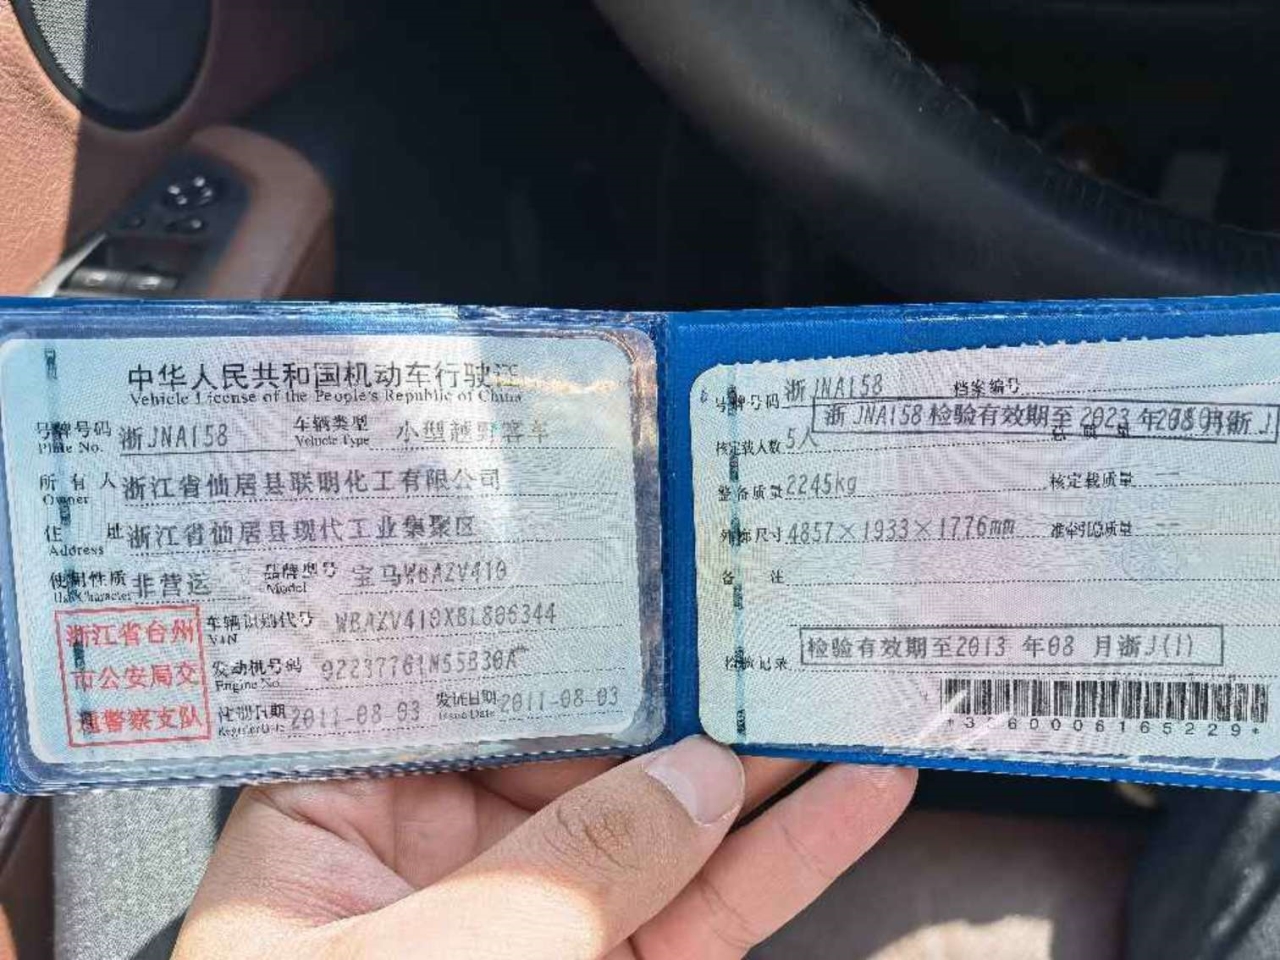 中华人民共和国机动车行驶证
Vehicle License of the People's Republic of China
号牌号码 浙JNA158 车辆类型 小型越野客车
Plate No. Vehicle Type
所有人 浙江省仙居县联明化工有限公司
Owner
住址 浙江省仙居县现代工业集聚区
Address
使用性质 非营运 品牌型号 宝马WBAZV410
Use Character Model
浙江省台州
市公安局交
通警察支队
车辆识别代号 WBAZV410XBL806344
VIN
发动机号码 02237761N55B30A
Engine No.
注册日期 2011-08-03 发证日期 2011-08-03
Register Date Issue Date
号牌号码 浙JNA158 档案编号
浙JNA158 检验有效期至2023年 浙J
核定载人数 5人 总质量
整备质量 2245kg 核定载质量 --
外廓尺寸 4857×1933×1776mm 准牵引总质量 --
备注
检验记录 检验有效期至2013 年08 月浙J(1)
*3360006165229*